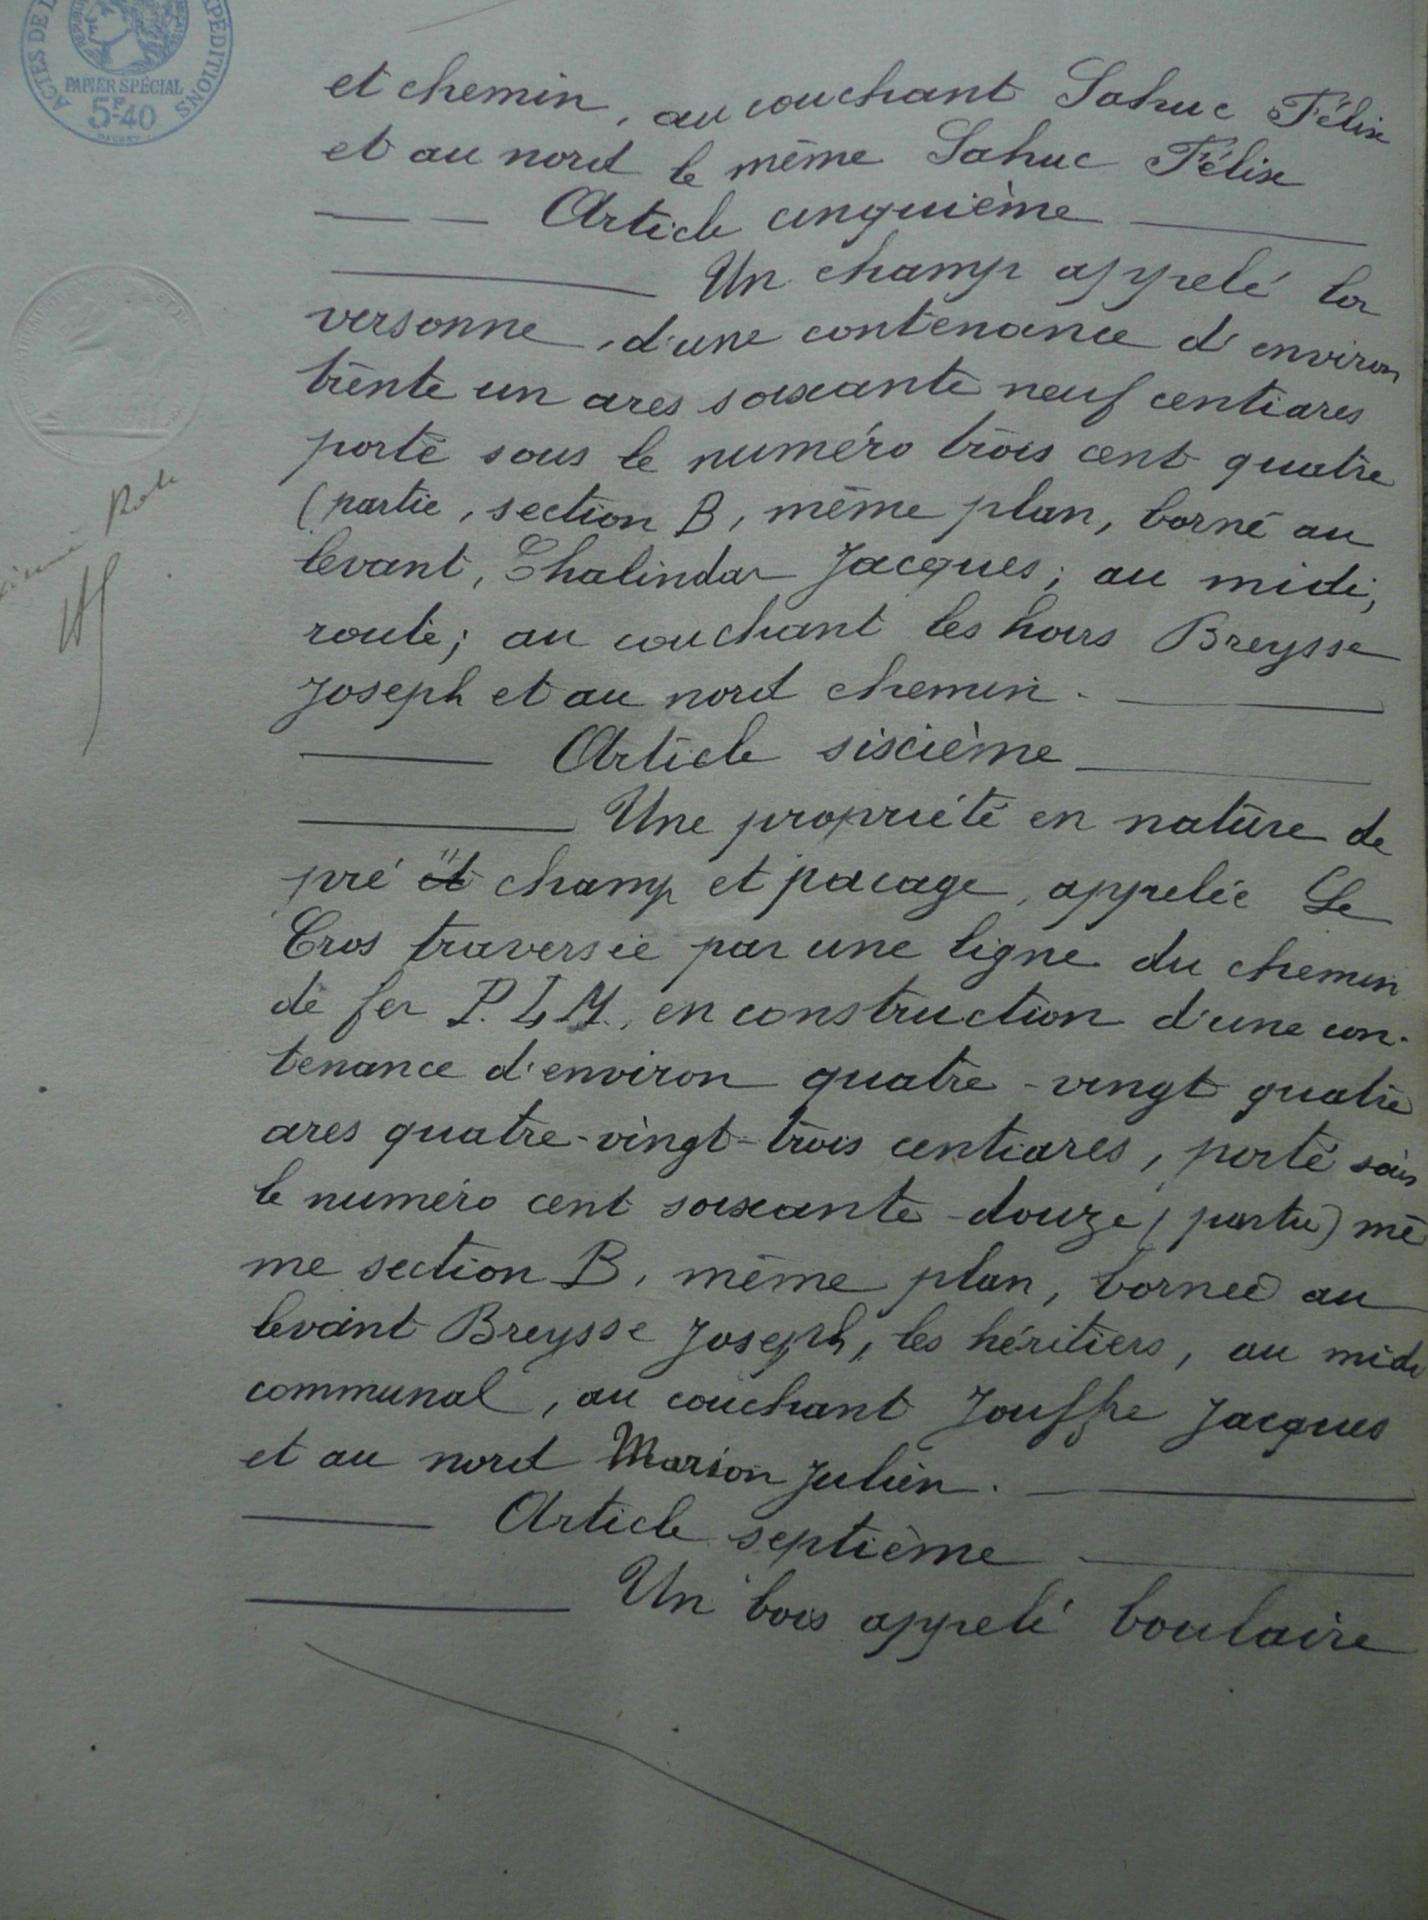 ACTES DE L
EXPÉDITIONS
PAPIER SPÉCIAL
5F.40
et chemin, au couchant Sahuc Félix
et au nord le même Sahuc Félix
Article cinquième
Un champ appelé la
versonne, d'une contenance d'environ
trente un ares soixante neuf centiares
porté sous le numéro trois cent quatre
(partie, section B, même plan, borné au
levant, Chalindar Jacques; au midi,
route; au couchant les hoirs Breysse
Joseph et au nord chemin.
Article sixième
Une propriété en nature de
pré et champ et pacage, appelée Le
Cros traversée par une ligne du chemin
de fer P.L.M. en construction d'une con-
tenance d'environ quatre-vingt quatre
ares quatre-vingt-trois centiares, porté sous
le numéro cent soixante-douze (partie) mê
me section B, même plan, bornée au
levant Breysse Joseph, les héritiers, au midi
communal, au couchant Jouffre Jacques
et au nord Marion Julien.
Article septième
Un bois appelé boulaire
Role